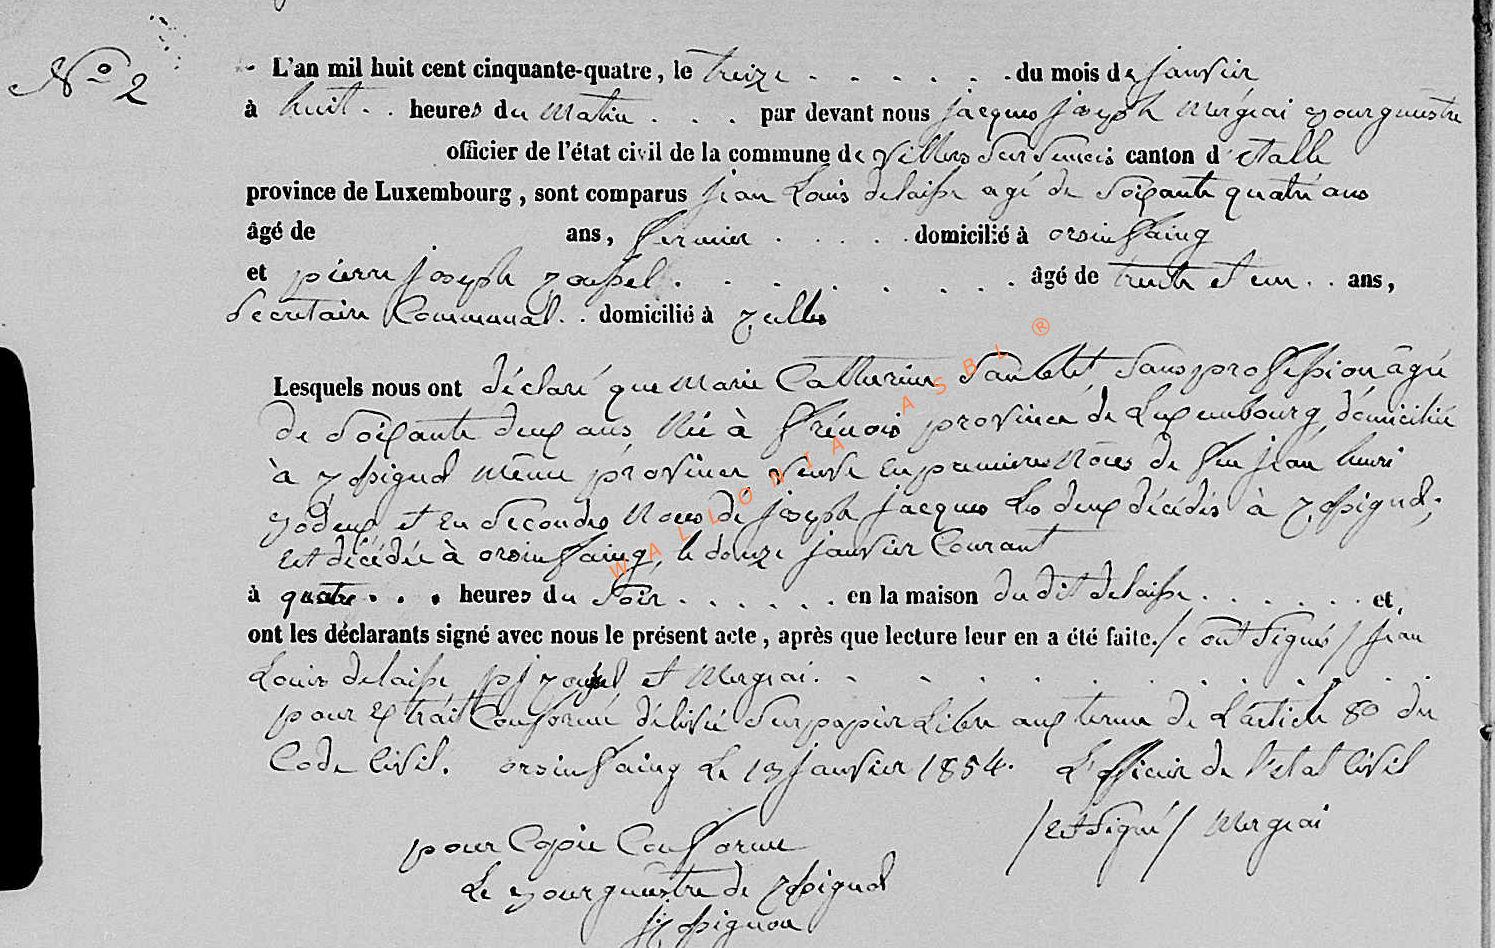 N° 2
L'an mil huit cent cinquante-quatre, le treize . . . . . . du mois de janvier
à huit . . heures du matin . . . par devant nous jacques joseph Mergeai Bourguestre
officier de l'état civil de la commune de Villers Sur Semois canton d'étalle
province de Luxembourg, sont comparus jean Louis delaisse agé de Soixante quatre ans
âgé de ans, fermier . . . . . domicilié à orsinfaing
et pierre joseph . . . . . . . . âgé de trente et un . . ans,
Secretaire Communal . . domicilié à
Lesquels nous ont déclaré que Marie Catherine Sans profession âgée
de Soixante deux ans, Née à frénois province de Luxembourg, domiciliée
à même province veuve En premieres Nôces de feu jean henri
et En Secondes Noces de joseph jacques Les deux décédés à
Est décédée à orsinfaing, le douze janvier Courant
à quatre . . . heures du Soir . . . . . . en la maison du dit delaisse . . . . . . et,
ont les déclarants signé avec nous le présent acte, après que lecture leur en a été faite. / ont Signés / jean
Louis delaisse, pj et Mergeai. . . . . . . . . .
pour Extrait Conforme délivré Sur papier Libre aux terme de L'article 80 du
Code Civil. orsinfaing Le 13 janvier 1854. L'officier de l'etat Civil
/ Est Signé / Mergeai
pour Copie Conforme
Le Bourguestre de
WALLONIA ASBL ®